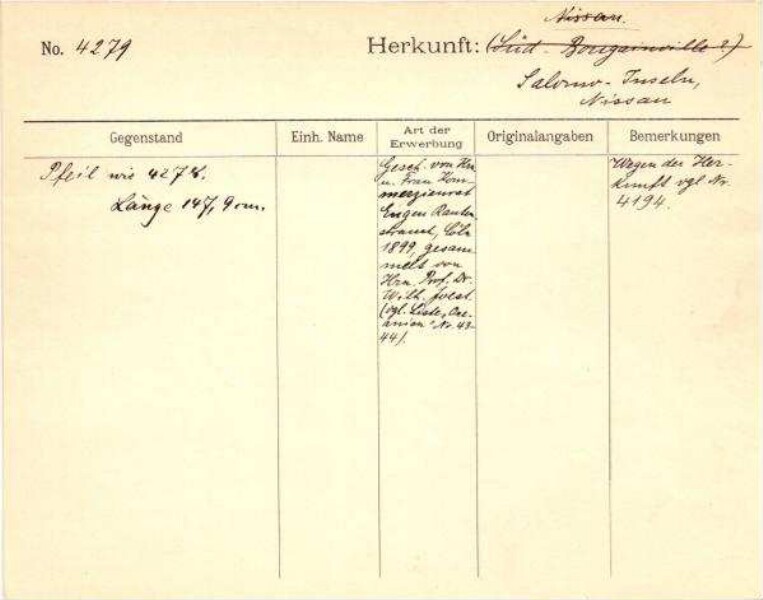 Nissan.
No. 4279
Herkunft: (Süd-Bougainville?)
Salomo-Inseln,
Nissan
Gegenstand
Einh. Name
Art der
Erwerbung
Originalangaben
Bemerkungen
Pfeil wie 4278.
Länge 147,9 cm.
Gesch. von Hrn
u. Frau Kom-
merzienrat
Eugen Rauten-
strauch, Cöln
1899, gesam-
melt von
Hrn. Prof. Dr.
Wilh. Joest.
(vgl. Liste "Oce-
anien" Nr. 43-
44).
Wegen der Her-
kunft vgl. Nr.
4194.